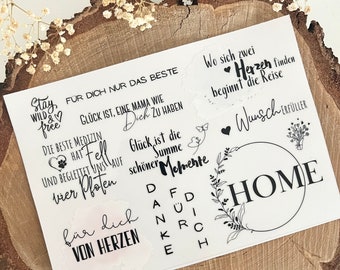 Stay
WILD &
free
FÜR DICH NUR DAS BESTE
GLÜCK IST, EINE MAMA WIE
Dich ZU HABEN
Wo sich zwei
Herzen finden
beginnt die Reise
DIE BESTE MEDIZIN
HAT Fell
UND BEGLEITET UNS AUF
vier Pfoten
Glück ist die
Summe
schöner Momente
Wunsch ERFÜLLER
für dich
VON HERZEN
DANKE
FÜR
DICH
HOME